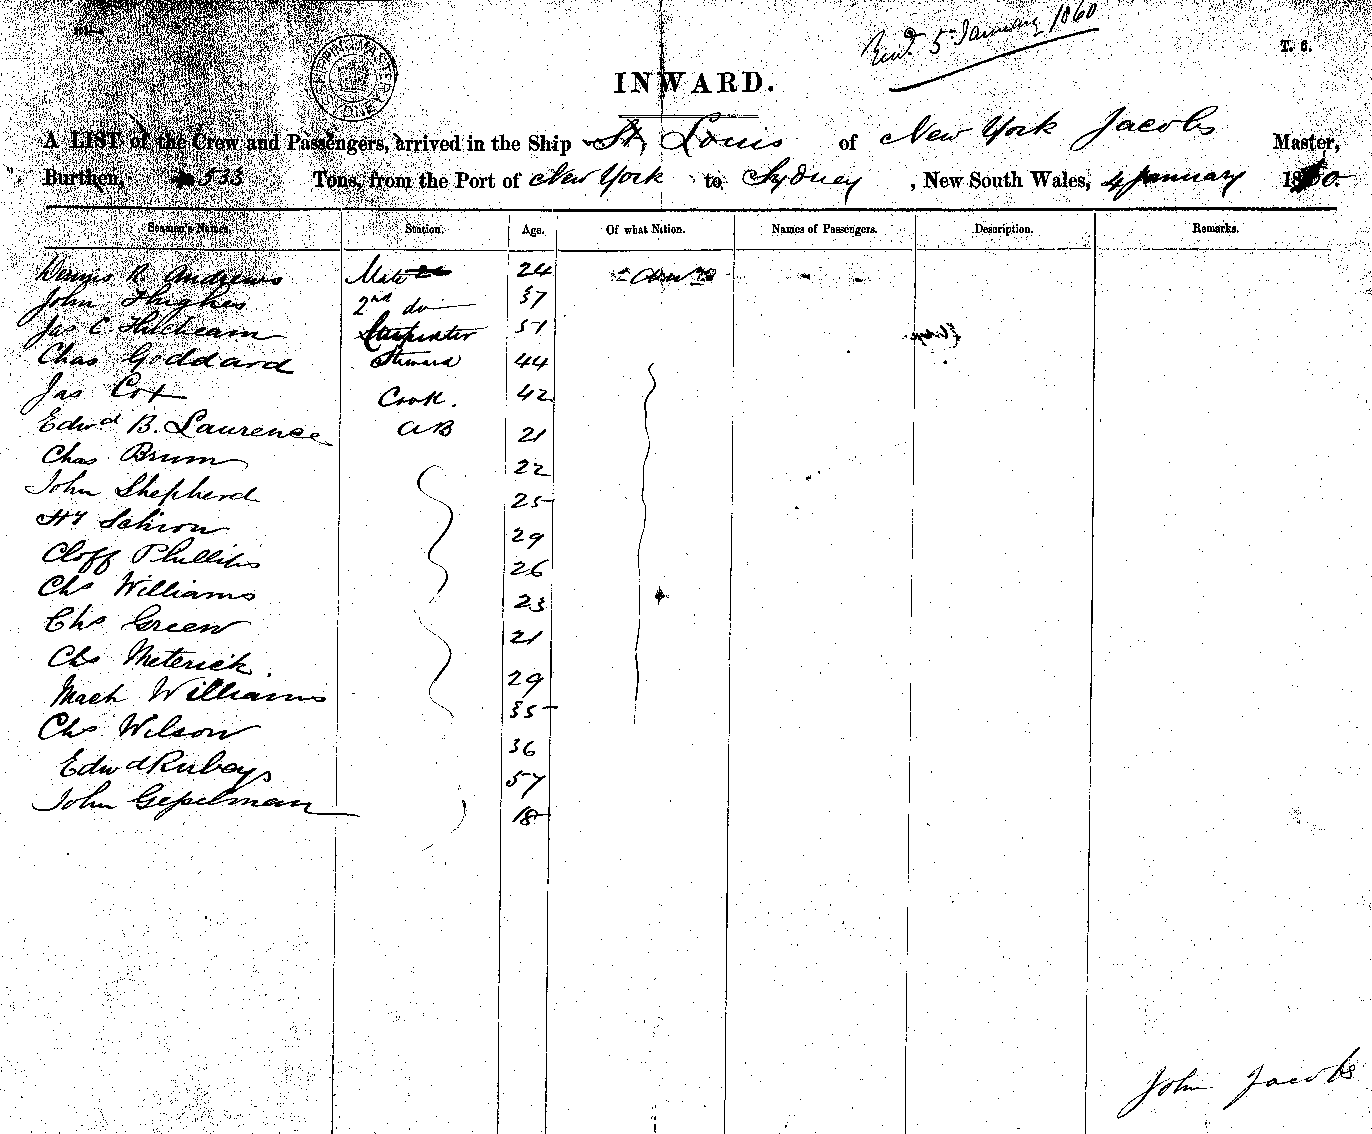 5 January 1860
T. 6.
INWARD.
A LIST of the Crew and Passengers, arrived in the Ship St. Louis of New York Jacobs Master,
Burthen, 533 Tons, from the Port of New York to Sydney, New South Wales, 4 January 1860.
Seamen's Names. Station. Age. Of what Nation. Names of Passengers. Description. Remarks.
Dennis R Andrews Mate 24
John Hughes 2nd do 37
Jas C Carpenter 51
Chas Goddard Steward 44
Jas Cox Cook. 42
Edwd B. Laurence AB 21
Chas Brum 22
John Shepherd 25
Hy 29
Phillips 26
Chs Williams 23
Chs Green 21
Chs Meterick 29
Mach Williams 35
Chs Wilson 36
Edwd Rubeys 57
John Gepelman 18
John Jacobs